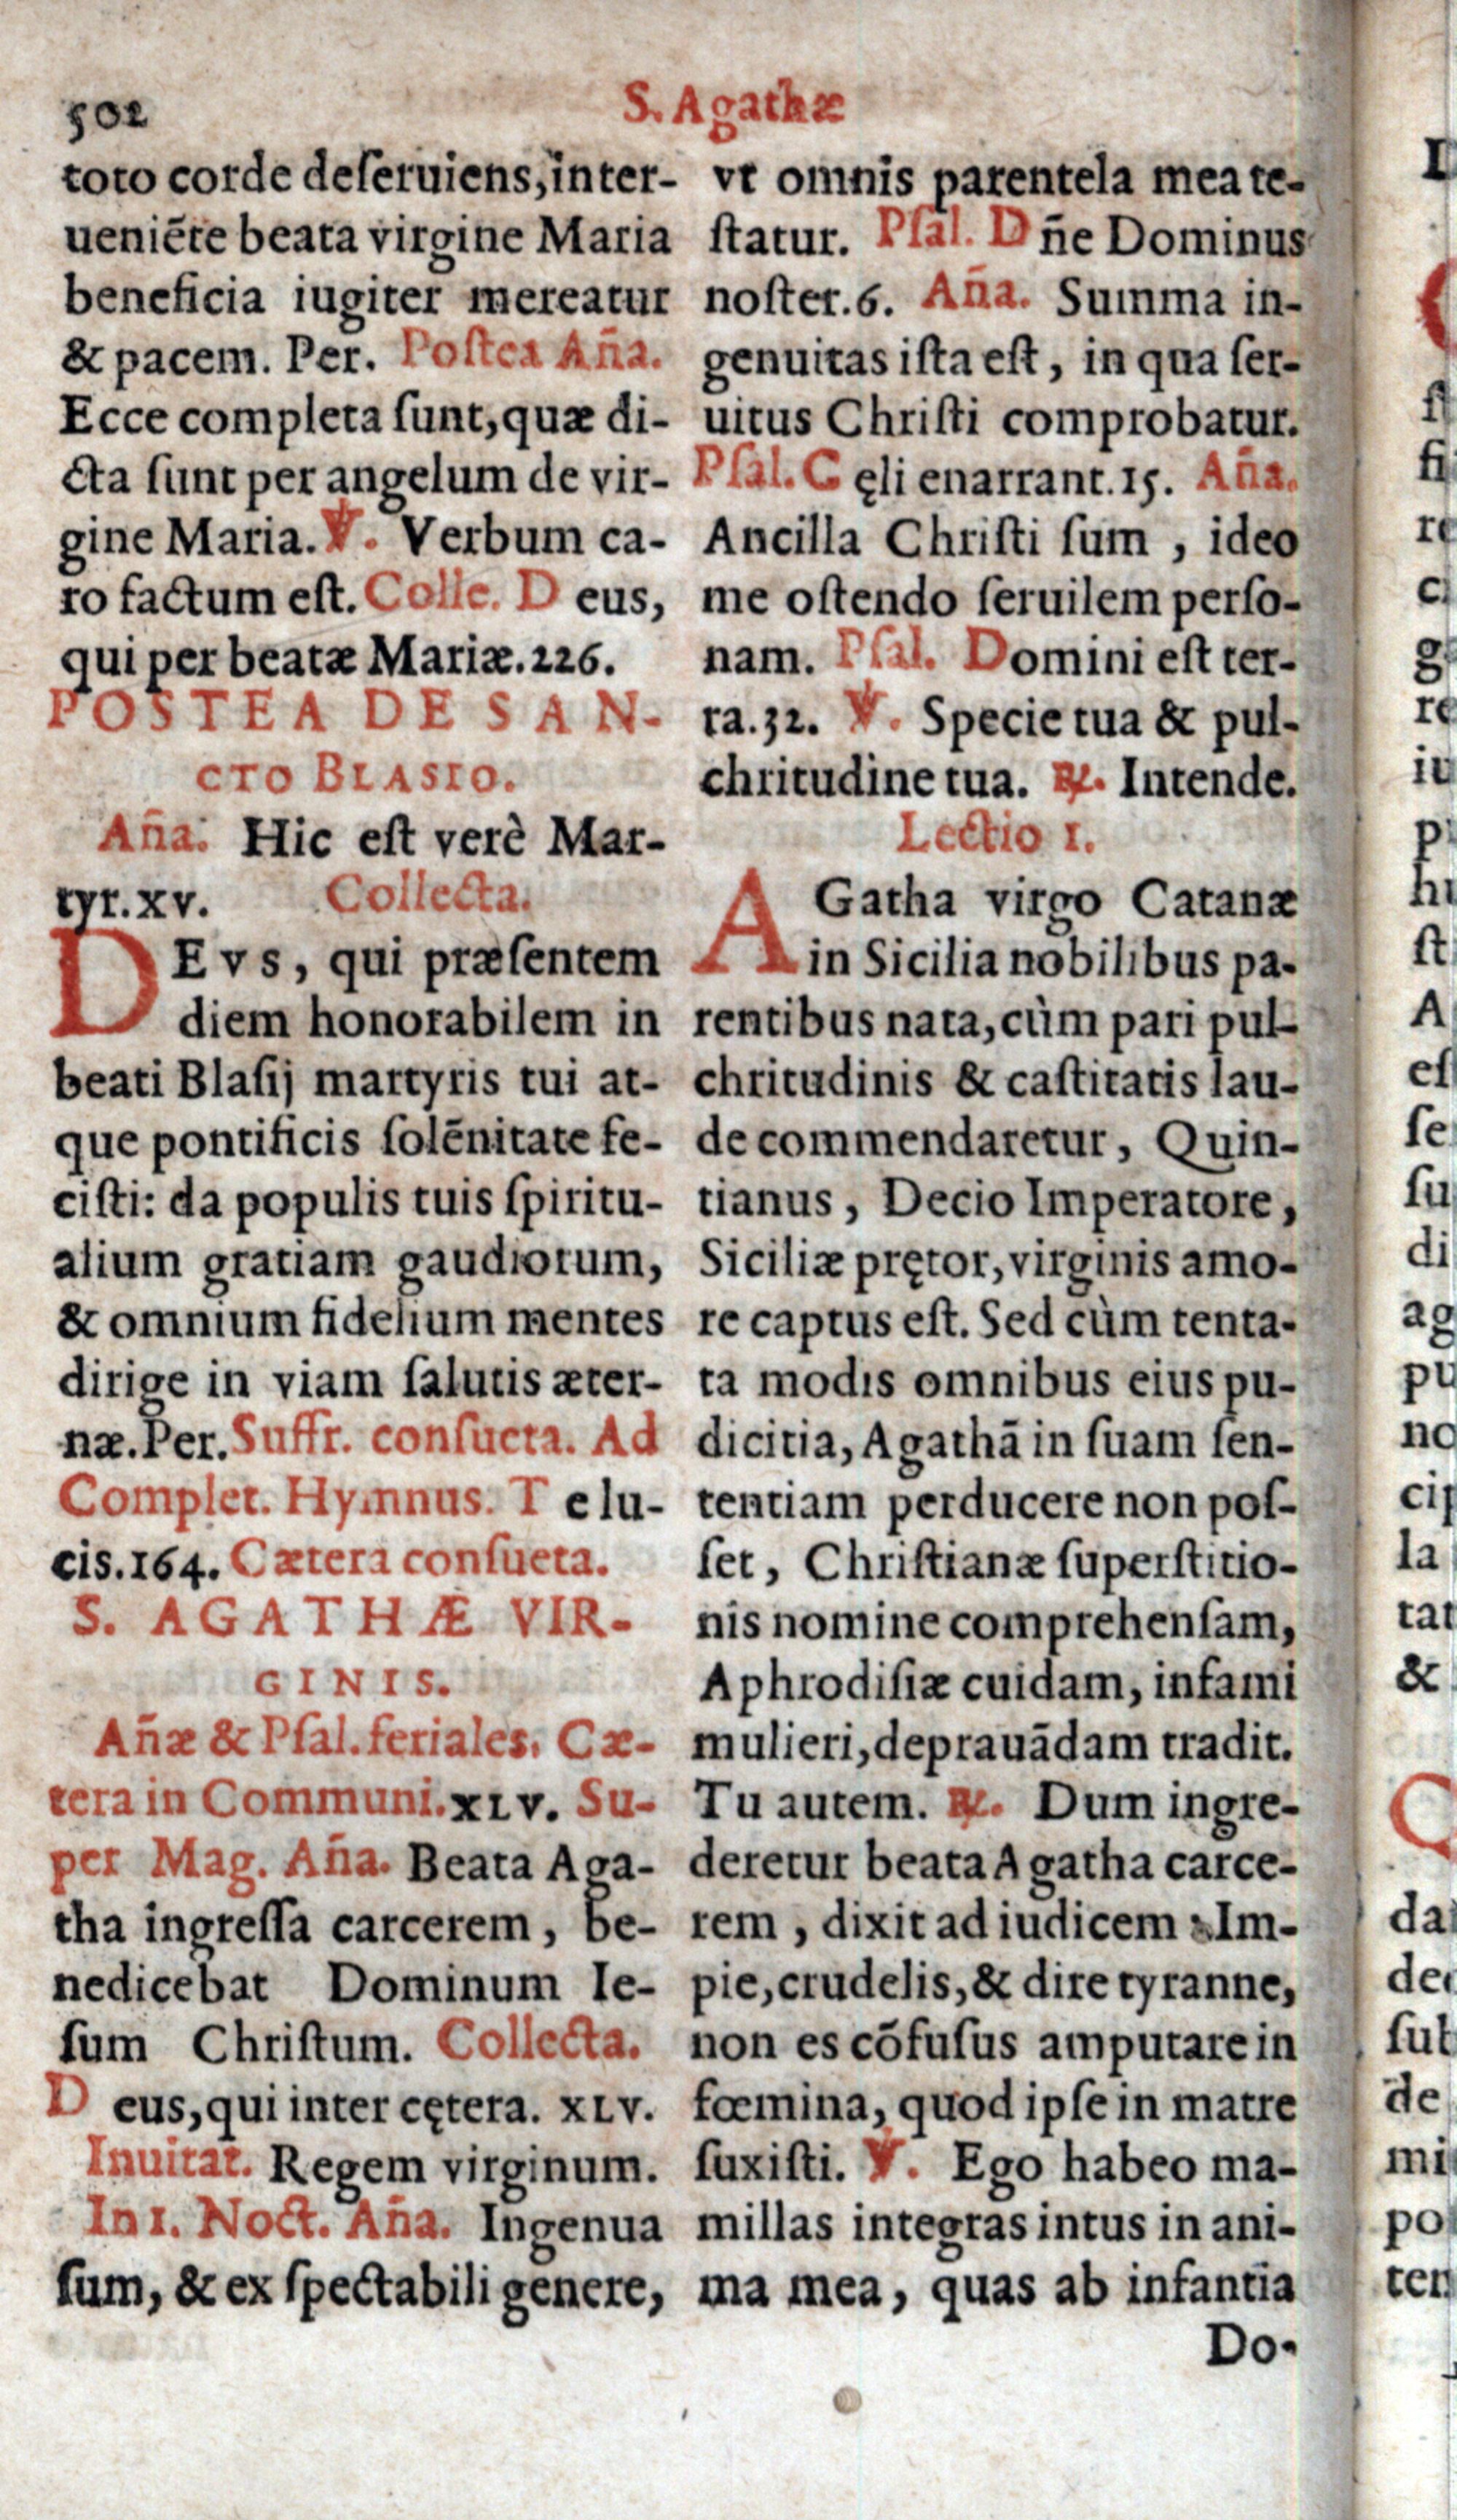 502
S. Agathæ
toto corde deſeruiens, inter-
ueniēte beata virgine Maria
beneficia iugiter mereatur
& pacem. Per. Poſtea Añā.
Ecce completa ſunt, quæ di-
cta ſunt per angelum de vir-
gine Maria. ℣. Verbum ca-
ro factum eſt. Colle. D eus,
qui per beatæ Mariæ. 226.
POSTEA DE SAN-
CTO BLASIO.
Aña. Hic eſt verè Mar-
tyr. xv. Collecta.
DEvs, qui præſentem
diem honorabilem in
beati Blaſij martyris tui at-
que pontificis ſolēnitate fe-
ciſti: da populis tuis ſpiritu-
alium gratiam gaudiorum,
& omnium fidelium mentes
dirige in viam ſalutis æter-
næ. Per. Suffr. conſueta. Ad
Complet. Hymnus. T e lu-
cis. 164. Cætera conſueta.
S. AGATHÆ VIR-
GINIS.
Añæ & Pſal. feriales. Cæ-
tera in Communi. XLV. Su-
per Mag. Aña. Beata Aga-
tha ingreſſa carcerem, be-
nedicebat Dominum Ie-
ſum Chriſtum. Collecta.
D eus, qui inter cętera. XLV.
Inuitat. Regem virginum.
In 1. Noct. Aña. Ingenua
ſum, & ex ſpectabili genere,
vt omnis parentela mea te-
ſtatur. Pſal. D ñe Dominus
noſter. 6. Aña. Summa in-
genuitas iſta eſt, in qua ſer-
uitus Chriſti comprobatur.
Pſal. C ęli enarrant. 15. Aña.
Ancilla Chriſti ſum, ideo
me oſtendo ſeruilem perſo-
nam. Pſal. Domini eſt ter-
ra. 32. ℣. Specie tua & pul-
chritudine tua. ℟. Intende.
Lectio 1.
AGatha virgo Catanæ
in Sicilia nobilibus pa-
rentibus nata, cùm pari pul-
chritudinis & caſtitatis lau-
de commendaretur, Quin-
tianus, Decio Imperatore,
Siciliæ prętor, virginis amo-
re captus eſt. Sed cùm tenta-
ta modis omnibus eius pu-
dicitia, Agathā in ſuam ſen-
tentiam perducere non poſ-
ſet, Chriſtianæ ſuperſtitio-
nis nomine comprehenſam,
Aphrodiſiæ cuidam, infami
mulieri, deprauādam tradit.
Tu autem. ℟. Dum ingre-
deretur beata Agatha carce-
rem, dixit ad iudicem: Im-
pie, crudelis, & dire tyranne,
non es cōfuſus amputare in
fœmina, quod ipſe in matre
ſuxiſti. ℣. Ego habeo ma-
millas integras intus in ani-
ma mea, quas ab infantia
Do-